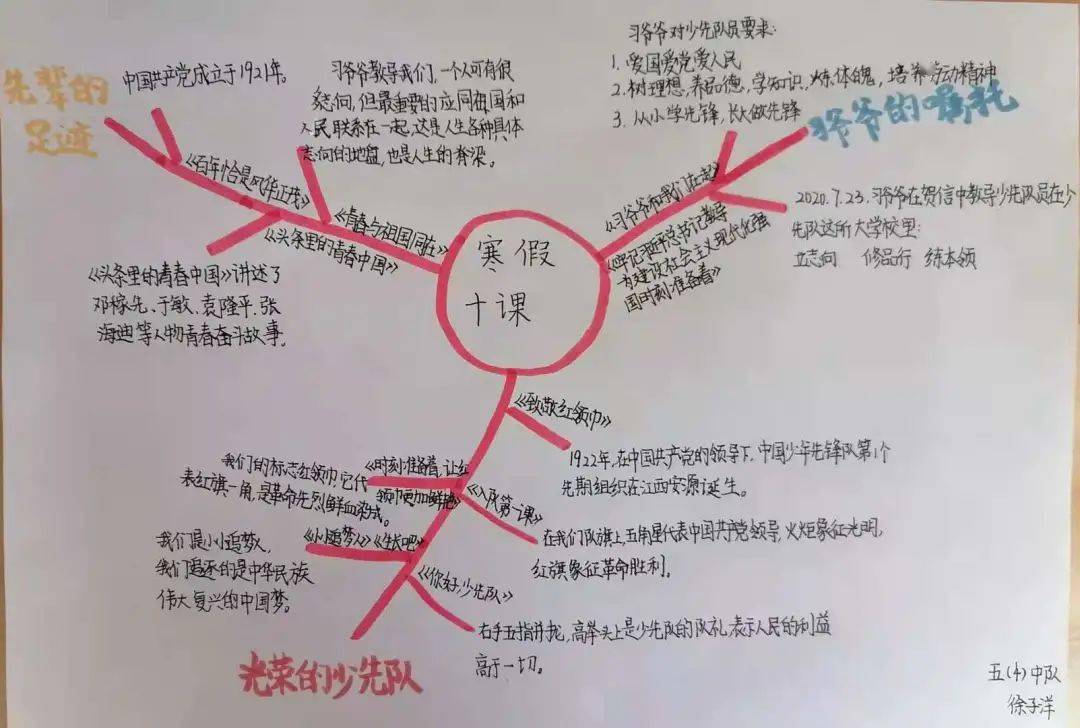 先辈的
足迹
中国共产党成立于1921年。
《百年恰是风华正茂》
习爷爷教导我们,一个人可有很
多志向,但最重要的应同祖国和
人民联系在一起,这是人生各种具体
志向的地盘,也是人生的脊梁。
《青春与祖国同在》
《头条里的青春中国》
《头条里的青春中国》讲述了
邓稼先、于敏、袁隆平、张
海迪等人物青春奋斗故事。
寒假
十课
习爷爷的嘱托
习爷爷对少先队员要求:
1. 爱国爱党爱人民
2. 树理想,养品德,学知识,炼体魄,培养劳动精神
3. 从小学先锋,长大做先锋
《习爷爷和我们在一起》
2020.7.23.习爷爷在贺信中教导少先队员在少
先队这所大学校里:
立志向 修品行 练本领
《牢记习近平总书记教导
为建设社会主义现代化强
国时刻准备着》
《致敬红领巾》
1922年,在中国共产党的领导下,中国少年先锋队第1个
先期组织在江西安源诞生。
《时刻准备着,让红
领巾更加鲜艳》
我们的标志红领巾,它代
表红旗一角,是革命先烈鲜血染成。
《入队第一课》
在我们队旗上,五角星代表中国共产党领导,火炬象征光明,
红旗象征革命胜利。
《小小追梦人》《生长吧》
我们是小追梦人,
我们追逐的是中华民族
伟大复兴的中国梦。
《你好,少先队》
右手五指并拢,高举头上是少先队的队礼,表示人民的利益
高于一切。
光荣的少先队
五(4)中队
徐子洋